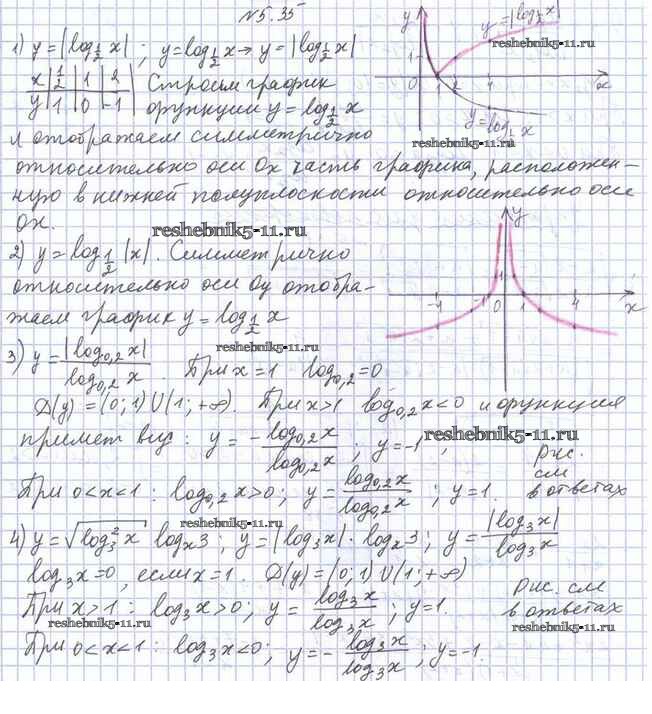 №5.35
1) y=|log_{1/2} x| ; y=log_{1/2} x → y=|log_{1/2} x|
x | 1/2 | 1 | 2 | Строим график
y | 1 | 0 | -1 | функции y=log_{1/2} x
и отображаем симметрично
относительно оси Ox часть графика, расположен-
ную в нижней полуплоскости относительно оси
Ox.
y
y=|log_{1/2} x|
1
0 1 2 4 x
y=log_{1/2} x
reshebnik5-11.ru
reshebnik5-11.ru
2) y=log_{1/2} |x|. Симметрично
относительно оси Oy отобра-
жаем график y=log_{1/2} x
y
1
-1 0 1 4 x
reshebnik5-11.ru
3) y=|log_{0,2} x|/log_{0,2} x При x=1 log_{0,2}=0
D(y)=(0;1)U(1;+∞). При x>1 log_{0,2} x<0 и функция
примет вид: y=-log_{0,2} x/log_{0,2} x ; y=-1 ;
reshebnik5-11.ru
При 0<x<1: log_{0,2} x>0; y=log_{0,2} x/log_{0,2} x ; y=1.
рис.
см
в ответах
reshebnik5-11.ru
4) y=√log_3^2 x log_x 3 ; y=|log_3 x|·log_x 3 ; y=|log_3 x|/log_3 x
log_3 x=0, если x=1. D(y)=(0;1)U(1;+∞)
При x>1: log_3 x>0; y=log_3 x/log_3 x ; y=1.
Рис. см
в ответах
reshebnik5-11.ru
reshebnik5-11.ru
При 0<x<1: log_3 x<0; y=-log_3 x/log_3 x ; y=-1.